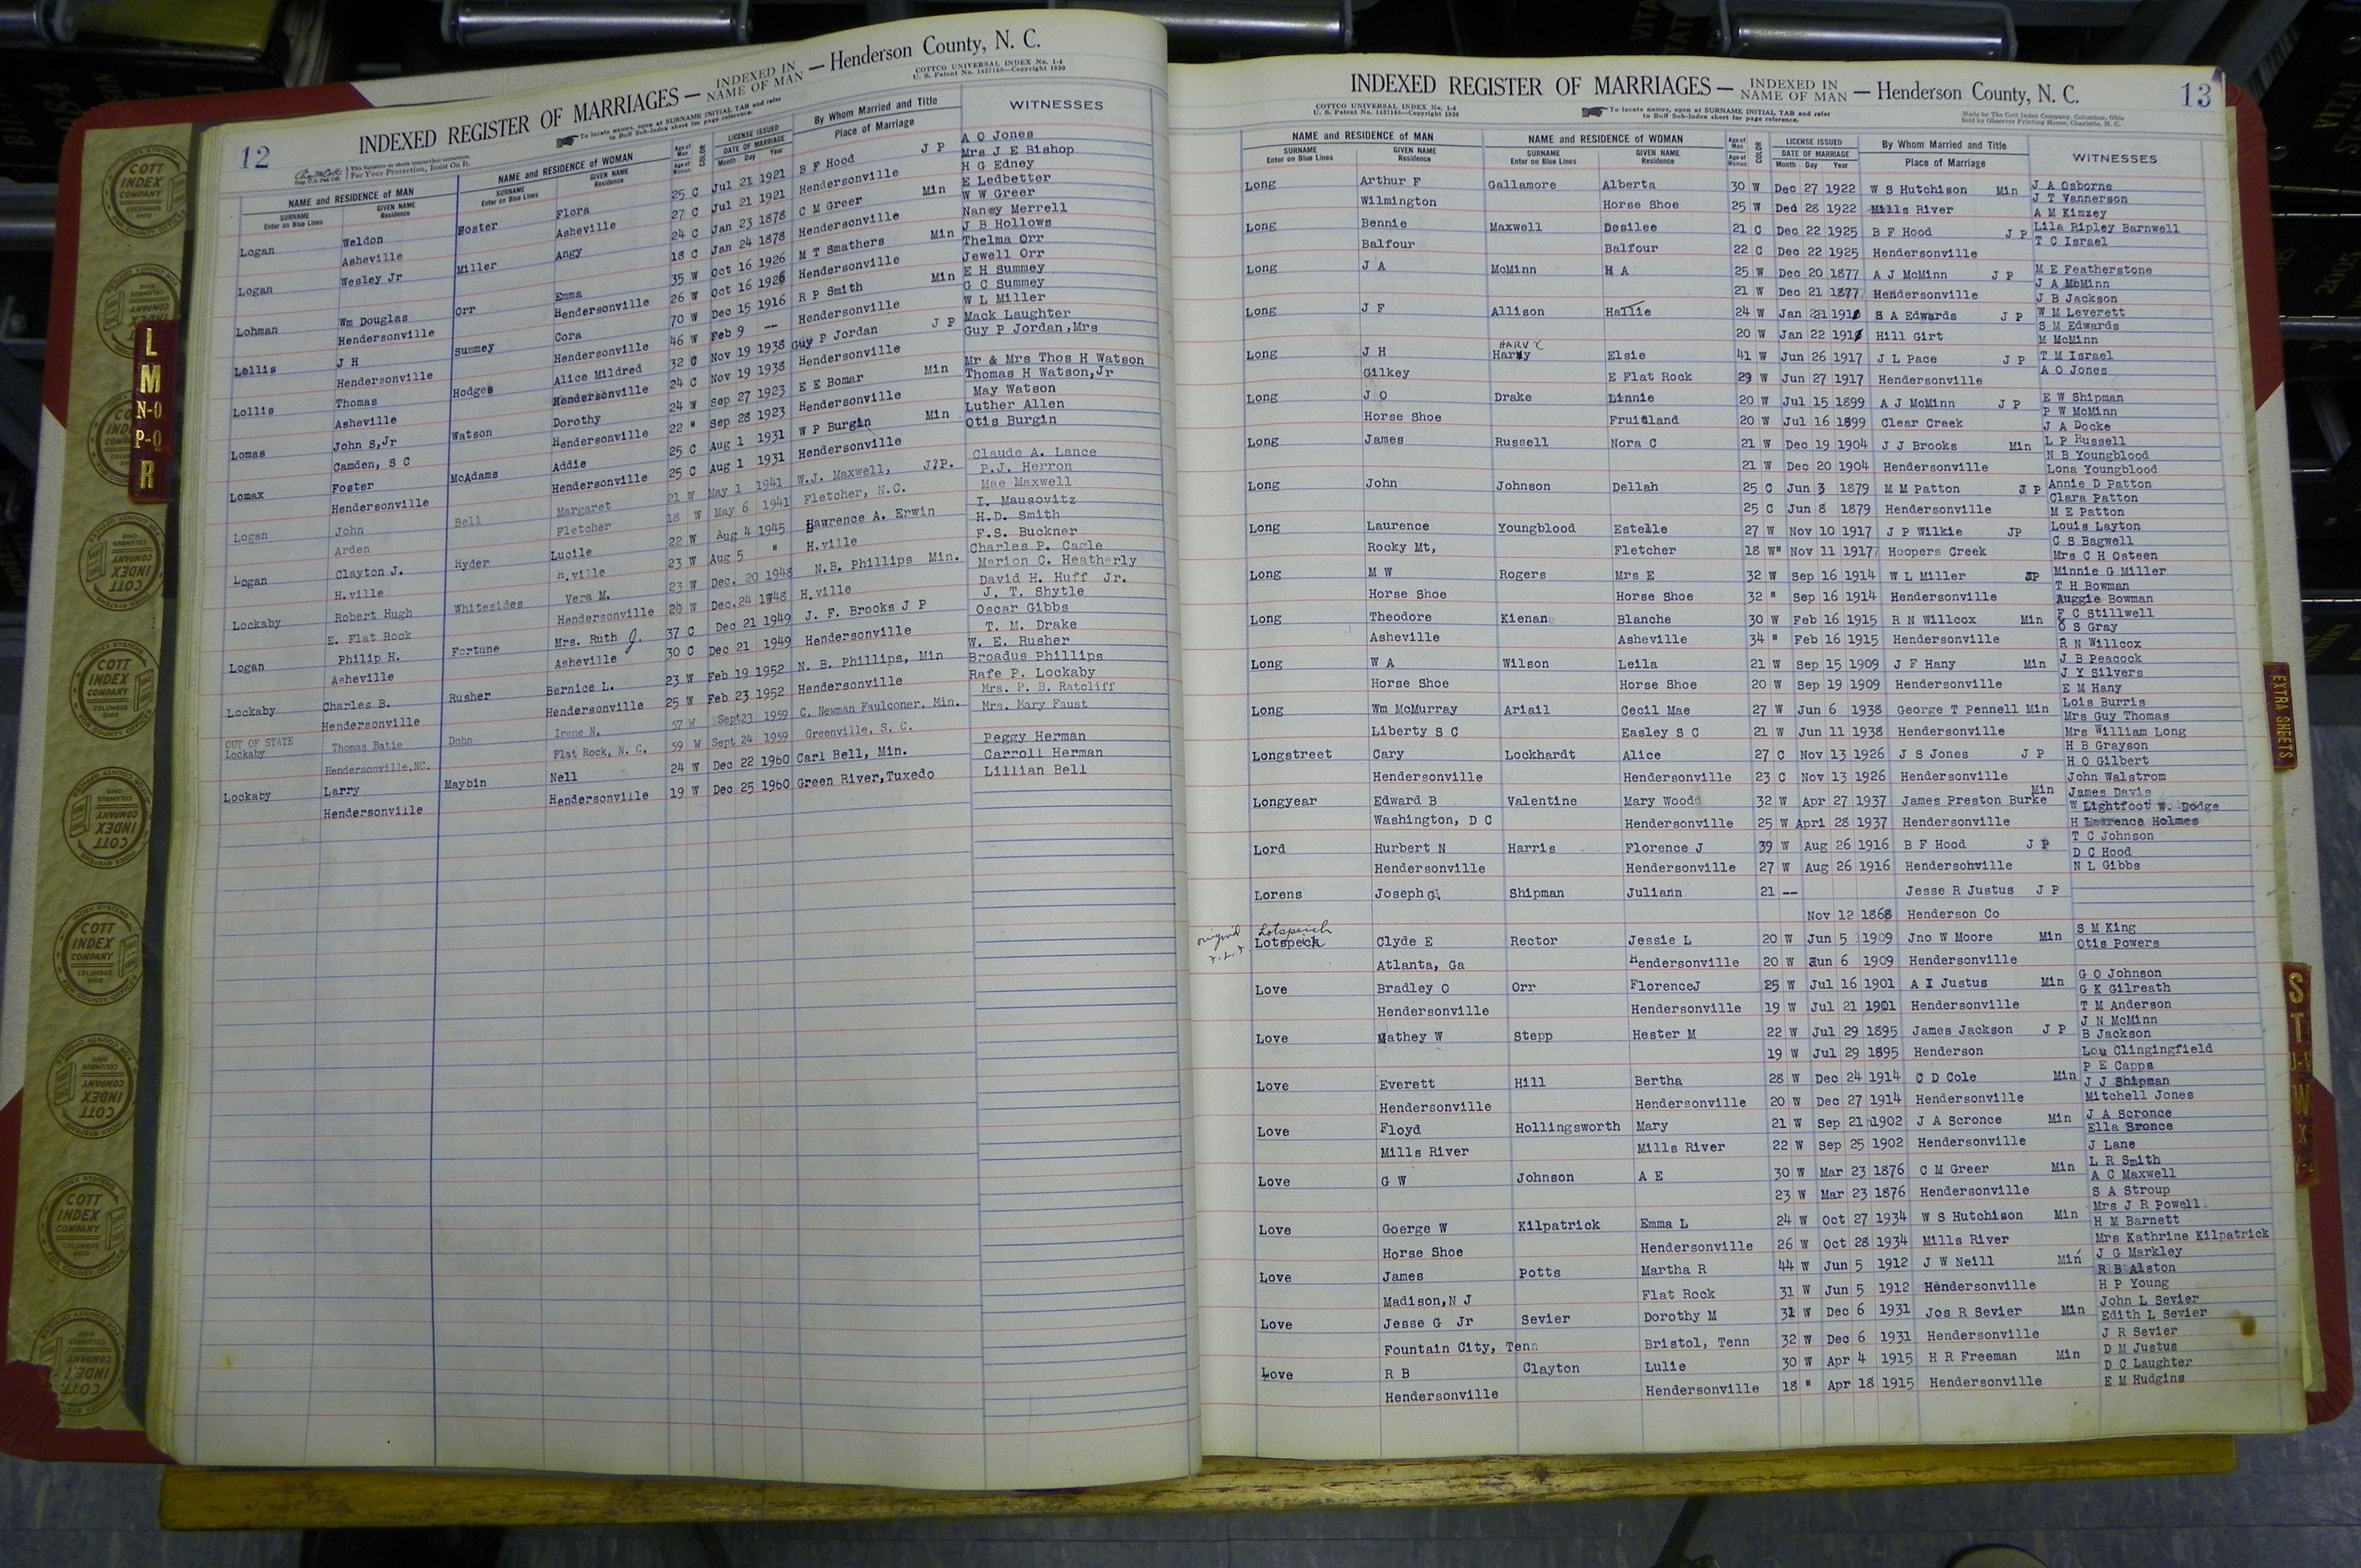 12
INDEXED REGISTER OF MARRIAGES — INDEXED IN NAME OF MAN — Henderson County, N. C.
COTTCO UNIVERSAL INDEX No. 1-4
U. S. Patent No. 1437168—Copyright 1930
To locate names, open at SURNAME INITIAL TAB and refer
to Buff Sub-Index sheet for page reference.
For Your Protection, Insist On It.
NAME and RESIDENCE of MAN NAME and RESIDENCE of WOMAN Age of Man COLOR LICENSE ISSUED By Whom Married and Title WITNESSES
SURNAME Enter on Blue Lines GIVEN NAME Residence SURNAME Enter on Blue Lines GIVEN NAME Residence Age of Woman DATE OF MARRIAGE Month Day Year Place of Marriage
Logan Weldon Foster Flora 25 C Jul 21 1921 B F Hood J P A O Jones
Mrs J E Bishop
Asheville Asheville 27 C Jul 21 1921 Hendersonville H G Edney
Logan Wesley Jr Miller Angy 24 C Jan 23 1878 C M Greer Min E Ledbetter
W W Greer
18 C Jan 24 1878 Hendersonville Nancy Merrell
Lohman Wm Douglas Orr Emma 35 W Oct 16 1926 M T Smathers Min J B Hollows
Thelma Orr
Hendersonville Hendersonville 26 W Oct 16 1926 Hendersonville Jewell Orr
Lollis J H Summey Cora 70 W Dec 15 1916 R P Smith Min E H Summey
G C Summey
Hendersonville Hendersonville 46 W Feb 9 -- Hendersonville W L Miller
Lollis Thomas Hodges Alice Mildred 32 C Nov 19 1938 Guy P Jordan J P Mack Laughter
Guy P Jordan,Mrs
Asheville Hendersonville 24 C Nov 19 1938 Hendersonville
Lomas John S,Jr Watson Dorothy 24 W Sep 27 1923 E E Bomar Min Mr & Mrs Thos H Watson
Thomas H Watson,Jr
Camden, S C Hendersonville 22 " Sep 28 1923 Hendersonville May Watson
Lomax Foster McAdams Addie 25 C Aug 1 1931 W P Burgin Min Luther Allen
Otis Burgin
Hendersonville Hendersonville 25 C Aug 1 1931 Hendersonville
Logan John Bell Margaret 21 W May 1 1941 W.J. Maxwell, J?P. Claude A. Lance
P.J. Herron
Arden Fletcher 18 W May 6 1941 Fletcher, N.C. Mae Maxwell
Logan Clayton J. Hyder Lucile 22 W Aug 4 1945 Lawrence A. Erwin I. Mausovitz
H.D. Smith
H.ville H.ville 23 W Aug 5 " H.ville F.S. Buckner
Lockaby Robert Hugh Whitesides Vera M. 23 W Dec. 20 1948 N.B. Phillips Min. Charles P. Cagle
Marion C. Heatherly
E. Flat Rock Hendersonville 20 W Dec.24 1948 H.ville David H. Huff Jr.
Logan Philip H. Fortune Mrs. Ruth J. 37 C Dec 21 1949 J. F. Brooks J P J. T. Shytle
Oscar Gibbs
Asheville Asheville 30 C Dec 21 1949 Hendersonville T. M. Drake
Lockaby Charles B. Rusher Bernice L. 23 W Feb 19 1952 N. B. Phillips, Min W. E. Rusher
Broadus Phillips
Hendersonville Hendersonville 25 W Feb 23 1952 Hendersonville Rafe P. Lockaby
OUT OF STATE
Lockaby Thomas Batie Dohn Irene N. 57 W Sept23 1959 C. Newman Faulconer, Min. Mrs. P. B. Ratcliff
Mrs. Mary Faust
Hendersonville,NC. Flat Rock, N. C. 59 W Sept 24 1959 Greenville, S. C.
Lockaby Larry Maybin Nell 24 W Dec 22 1960 Carl Bell, Min. Peggy Herman
Carroll Herman
Hendersonville Hendersonville 19 W Dec 25 1960 Green River,Tuxedo Lillian Bell
INDEXED REGISTER OF MARRIAGES — INDEXED IN NAME OF MAN — Henderson County, N. C. 13
COTTCO UNIVERSAL INDEX No. 1-4
U. S. Patent No. 1437168—Copyright 1930
To locate names, open at SURNAME INITIAL TAB and refer
to Buff Sub-Index sheet for page reference.
Made by The Cott Index Company, Columbus, Ohio
Sold by Observer Printing House, Charlotte, N. C.
NAME and RESIDENCE of MAN NAME and RESIDENCE of WOMAN Age of Man COLOR LICENSE ISSUED By Whom Married and Title WITNESSES
SURNAME Enter on Blue Lines GIVEN NAME Residence SURNAME Enter on Blue Lines GIVEN NAME Residence Age of Woman DATE OF MARRIAGE Month Day Year Place of Marriage
Long Arthur F Gallamore Alberta 30 W Dec 27 1922 W S Hutchison Min J A Osborne
J T Vannerson
Wilmington Horse Shoe 25 W Ded 28 1922 Mills River A M Kimzey
Long Bennie Maxwell Desilee 21 C Dec 22 1925 B F Hood J P Lila Ripley Barnwell
T C Israel
Balfour Balfour 22 C Dec 22 1925 Hendersonville
Long J A McMinn H A 25 W Dec 20 1877 A J McMinn J P M E Featherstone
J A McMinn
21 W Dec 21 1877 Hendersonville J B Jackson
Long J F Allison Hallie 24 W Jan 21 1910 S A Edwards J P W M Leverett
S M Edwards
20 W Jan 22 1910 Hill Girt M McMinn
HARVY
Long J H Harvy Elsie 41 W Jun 26 1917 J L Pace J P T M Israel
A O Jones
Gilkey E Flat Rock 29 W Jun 27 1917 Hendersonville
Long J O Drake Linnie 20 W Jul 15 1899 A J McMinn J P E W Shipman
P W McMinn
Horse Shoe Fruitland 20 W Jul 16 1899 Clear Creek J A Docke
Long James Russell Nora C 21 W Dec 19 1904 J J Brooks Min L P Russell
N B Youngblood
21 W Dec 20 1904 Hendersonville Lona Youngblood
Long John Johnson Dellah 25 C Jun 3 1879 M M Patton J P Annie D Patton
Clara Patton
25 C Jun 8 1879 Hendersonville M E Patton
Long Laurence Youngblood Estelle 27 W Nov 10 1917 J P Wilkie JP Louis Layton
C S Bagwell
Rocky Mt, Fletcher 18 W" Nov 11 1917 Hoopers Creek Mrs C H Osteen
Long M W Rogers Mrs E 32 W Sep 16 1914 W L Miller JP Minnie G Miller
T H Bowman
Horse Shoe Horse Shoe 32 " Sep 16 1914 Hendersonville Auggie Bowman
Long Theodore Kienan Blanche 30 W Feb 16 1915 R N Willcox Min F C Stillwell
O S Gray
Asheville Asheville 34 " Feb 16 1915 Hendersonville R N Willcox
Long W A Wilson Leila 21 W Sep 15 1909 J F Hany Min J B Peacock
J Y Silvers
Horse Shoe Horse Shoe 20 W Sep 19 1909 Hendersonville E M Hany
Long Wm McMurray Ariail Cecil Mae 27 W Jun 6 1938 George T Pennell Min Lois Burris
Mrs Guy Thomas
Liberty S C Easley S C 21 W Jun 11 1938 Hendersonville Mrs William Long
Longstreet Cary Lockhardt Alice 27 C Nov 13 1926 J S Jones J P H B Grayson
H O Gilbert
Hendersonville Hendersonville 23 C Nov 13 1926 Hendersonville John Walstrom
Longyear Edward B Valentine Mary Wood 32 W Apr 27 1937 James Preston Burke Min James Davis
W Lightfoot W. Dodge
Washington, D C Hendersonville 25 W Apri 28 1937 Hendersonville H Lawrence Holmes
Lord Hurbert N Harris Florence J 39 W Aug 26 1916 B F Hood J P T C Johnson
D C Hood
Hendersonville Hendersonville 27 W Aug 26 1916 Hendersohville N L Gibbs
Lorens Joseph G. Shipman Juliann 21 -- Jesse R Justus J P
Nov 12 1868 Henderson Co
Lotspeich
Lotspeck Clyde E Rector Jessie L 20 W Jun 5 1909 Jno W Moore Min S M King
Otis Powers
Atlanta, Ga Hendersonville 20 W Jun 6 1909 Hendersonville
Love Bradley O Orr FlorenceJ 25 W Jul 16 1901 A I Justus Min G O Johnson
G K Gilreath
Hendersonville Hendersonville 19 W Jul 21 1901 Hendersonville T M Anderson
Love Mathey W Stepp Hester M 22 W Jul 29 1895 James Jackson J P J N McMinn
B Jackson
19 W Jul 29 1895 Henderson Lou Clingingfield
Love Everett Hill Bertha 28 W Dec 24 1914 C D Cole Min P E Capps
J J Shipman
Hendersonville Hendersonville 20 W Dec 27 1914 Hendersonville Mitchell Jones
Love Floyd Hollingsworth Mary 21 W Sep 21 1902 J A Scronce Min J A Scronce
Ella Sronce
Mills River Mills River 22 W Sep 25 1902 Hendersonville J Lane
Love G W Johnson A E 30 W Mar 23 1876 C M Greer Min L R Smith
A C Maxwell
23 W Mar 23 1876 Hendersonville S A Stroup
Love Goerge W Kilpatrick Emma L 24 W Oct 27 1934 W S Hutchison Min Mrs J R Powell
H M Barnett
Horse Shoe Hendersonville 26 W Oct 28 1934 Mills River Mrs Kathrine Kilpatrick
Love James Potts Martha R 44 W Jun 5 1912 J W Neill Min J G Markley
R B Alston
Madison,N J Flat Rock 31 W Jun 5 1912 Hendersonville H P Young
Love Jesse G Jr Sevier Dorothy M 31 W Dec 6 1931 Jos R Sevier Min John L Sevier
Edith L Sevier
Fountain City, Tenn Bristol, Tenn 32 W Dec 6 1931 Hendersonville J R Sevier
Love R B Clayton Lulie 30 W Apr 4 1915 H R Freeman Min D M Justus
D C Laughter
Hendersonville Hendersonville 18 " Apr 18 1915 Hendersonville E M Hudgins
L
M
N-O
P-Q
R
EXTRA SHEETS
S
T
U-V
W
COTT INDEX COMPANY COLUMBUS OHIO